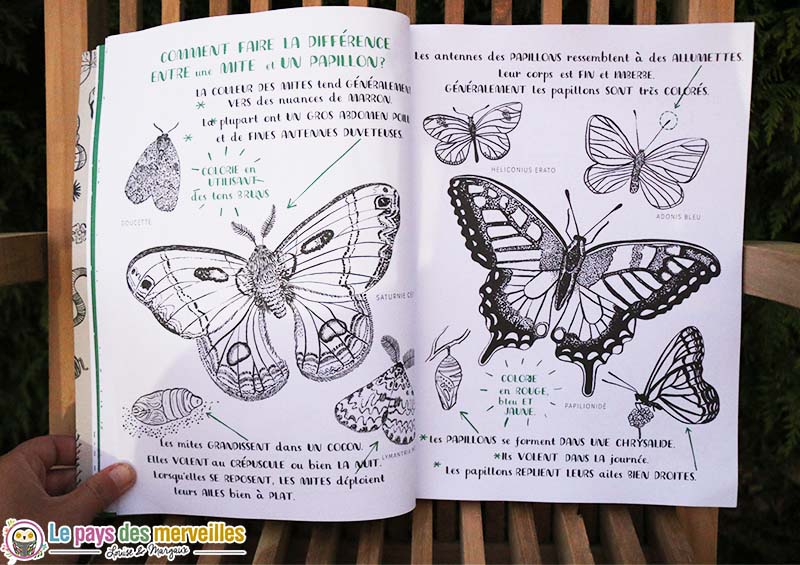 COMMENT FAIRE LA DIFFÉRENCE
ENTRE une MITE et UN PAPILLON?
LA COULEUR DES MITES tend GÉNÉRALEMENT
VERS des nuances de MARRON.
* La plupart ont UN GROS ABDOMEN
* et de FINES ANTENNES DUVETEUSES.
COLORIE en
UTILISANT
des tons BRUNS
DOUCETTE
SATURNIE
LYMANTRIA
Les mites GRANDISSENT dans UN COCON.
Elles VOLENT au CRÉPUSCULE ou bien LA NUIT.
Lorsqu'elles SE REPOSENT, LES MITES déploient
leurs AILES bien À PLAT.
Les antennes des PAPILLONS ressemblent à des ALLUMETTES.
Leur corps est FIN et IMBERBE.
GÉNÉRALEMENT les papillons SONT très COLORÉS.
HELICONIUS ERATO
ADONIS BLEU
COLORIE
en ROUGE,
bleu ET
JAUNE.
PAPILIONIDÉ
* Les PAPILLONS se forment DANS UNE CHRYSALIDE.
* Ils VOLENT DANS la journée.
* Les papillons REPLIENT LEURS ailes BIEN DROITES.
Le pays des merveilles
Louise & Margaux